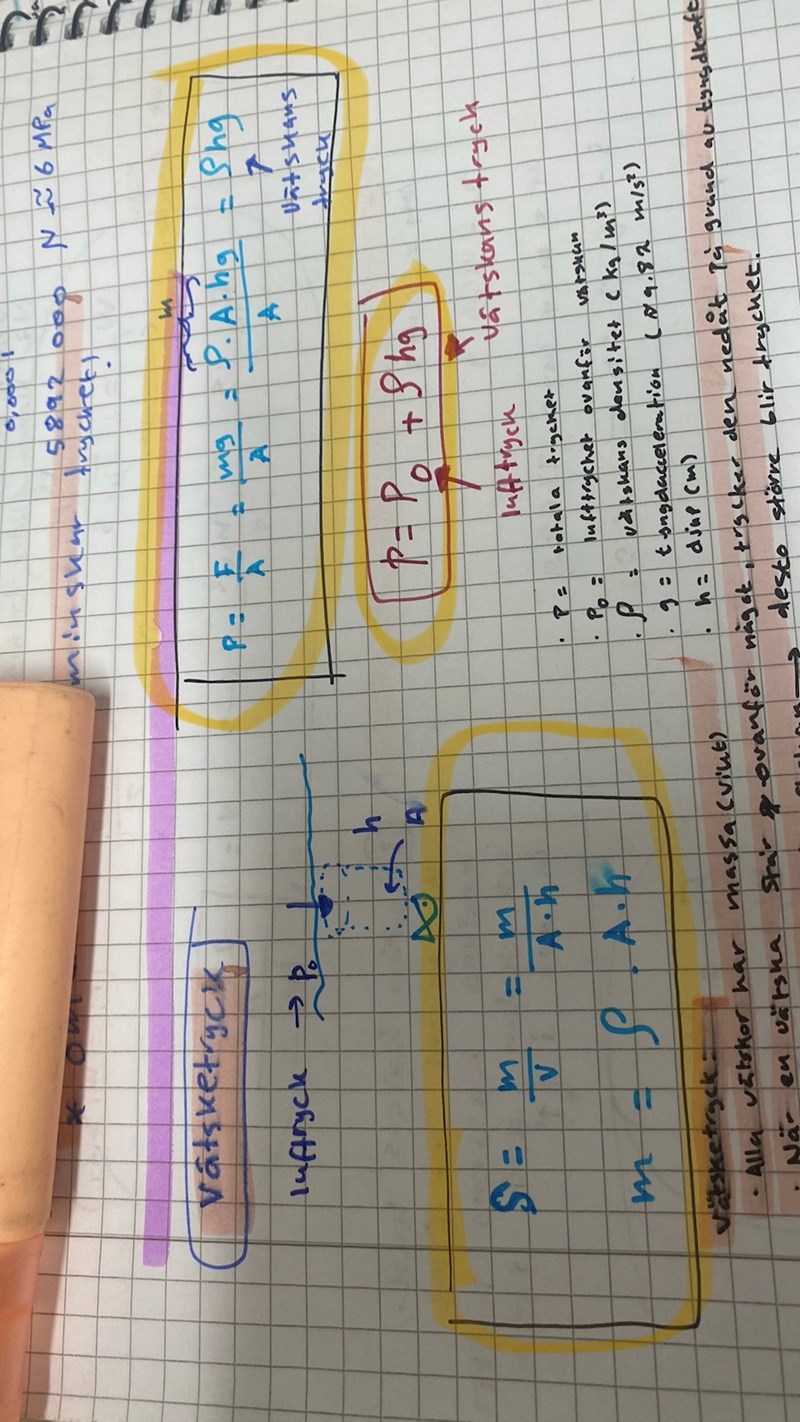 0,0001
5892 000 N ≈ 6 MPa
minskar trycket!
* öm
Vätsketryck
luftryck → P₀
h
A
m
P = F/A = mg/A = ρ.A.hg/A = ρhg
Vätskans
tryck
p = P₀ + ρhg
luftryck
Vätskans tryck
ρ = m/V = m/A·h
m = ρ · A·h
· P = totala trycket
· P₀ = lufttrycket ovanför vätskan
· ρ = vätskans densitet (kg/m³)
· g = tyngdacceleration (≈9.82 m/s²)
· h = djup (m)
Vätsketryck:
· Alla vätskor har massa (vikt)
· När en vätska står ovanför något, trycker den nedåt på grund av tyngdkraft
→ desto större blir trycket.